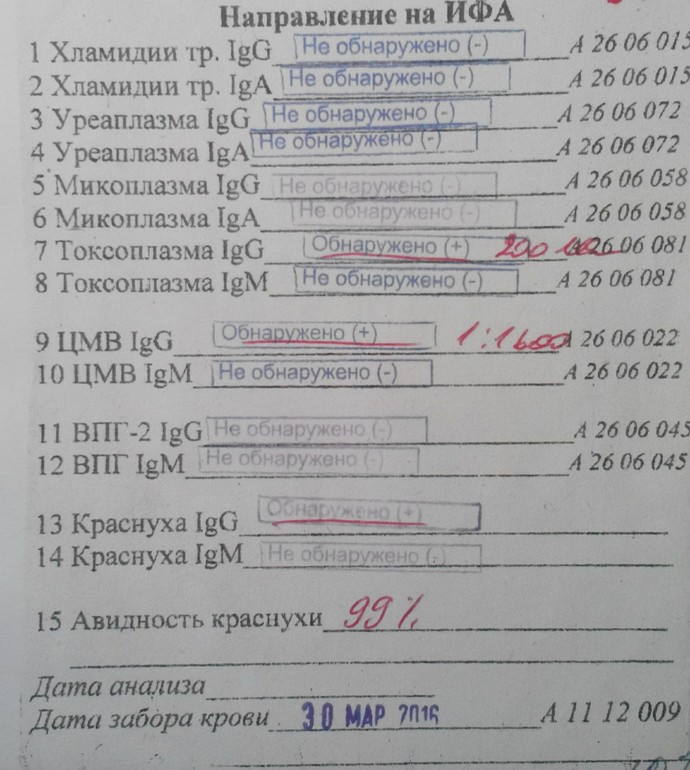 Направление на ИФА
1 Хламидии тр. IgG Не обнаружено (-) А 26 06 015
2 Хламидии тр. IgA Не обнаружено (-) А 26 06 015
3 Уреаплазма IgG Не обнаружено (-) А 26 06 072
4 Уреаплазма IgA Не обнаружено (-) А 26 06 072
5 Микоплазма IgG Не обнаружено (-) А 26 06 058
6 Микоплазма IgA Не обнаружено (-) А 26 06 058
7 Токсоплазма IgG Обнаружено (+) 200 А 26 06 081
8 Токсоплазма IgM Не обнаружено (-) А 26 06 081
9 ЦМВ IgG Обнаружено (+) 1:1600 А 26 06 022
10 ЦМВ IgM Не обнаружено (-) А 26 06 022
11 ВПГ-2 IgG Не обнаружено (-) А 26 06 045
12 ВПГ IgM Не обнаружено (-) А 26 06 045
13 Краснуха IgG Обнаружено (+)
14 Краснуха IgM Не обнаружено (-)
15 Авидность краснухи 99%
Дата анализа
Дата забора крови 30 МАР 2016 А 11 12 009